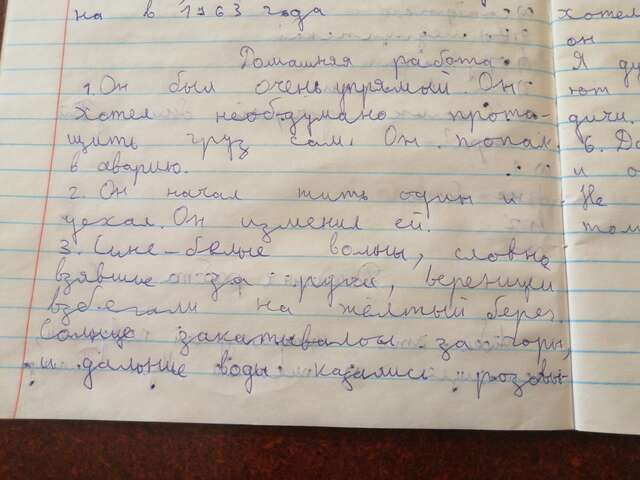 на в 1963 года
Домашняя работа.
1. Он был очень упрямый. Он
хотел необдумано прота-
щить груз сам. Он попал
в аварию.
2. Он начал жить один и
уехал. Он изменил ей.
3. Сине-белые волны, словно
взявшие за руки, вереницы
взбегали на жёлтый берег.
Солнце закатывалось за горы,
и дальние воды казались розовы-
хотел
он
Я ду
ют
дичи.
6. До
и о
Не
том